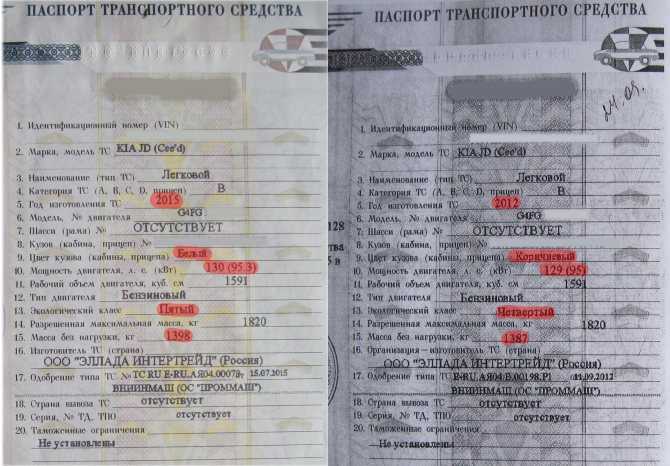 ПАСПОРТ ТРАНСПОРТНОГО СРЕДСТВА
1. Идентификационный номер (VIN)
2. Марка, модель ТС KIA JD (Cee'd)
3. Наименование (тип ТС) Легковой
4. Категория ТС (A, B, C, D, прицеп) B
5. Год изготовления ТС 2015
6. Модель, № двигателя G4FG
7. Шасси (рама) № ОТСУТСТВУЕТ
8. Кузов (кабина, прицеп) №
9. Цвет кузова (кабины, прицепа) Белый
10. Мощность двигателя, л. с. (кВт) 130 (95.3)
11. Рабочий объем двигателя, куб. см 1591
12. Тип двигателя Бензиновый
13. Экологический класс Пятый
14. Разрешенная максимальная масса, кг 1820
15. Масса без нагрузки, кг 1398
16. Изготовитель ТС (страна)
ООО "ЭЛЛАДА ИНТЕРТРЕЙД" (Россия)
17. Одобрение типа ТС № ТС RU E-RU.АЯ04.00078 15.07.2015
ВНИИНМАШ (ОС "ПРОММАШ")
18. Страна вывоза ТС отсутствует
19. Серия, № ТД, ТПО отсутствует
20. Таможенные ограничения
Не установлены
ПАСПОРТ ТРАНСПОРТНОГО СРЕДСТВА
24.09.
1. Идентификационный номер (VIN)
2. Марка, модель ТС KIA JD (Cee'd)
3. Наименование (тип ТС) Легковой
4. Категория ТС (A, B, C, D, прицеп) B
5. Год изготовления ТС 2012
6. Модель, № двигателя G4FG
7. Шасси (рама) № ОТСУТСТВУЕТ
128
8. Кузов (кабина, прицеп) №
9. Цвет кузова (кабины, прицепа) Коричневый
10. Мощность двигателя, л. с. (кВт) 129 (95)
11. Рабочий объем двигателя, куб. см 1591
12. Тип двигателя Бензиновый
13. Экологический класс Четвертый
14. Разрешенная максимальная масса, кг 1820
15. Масса без нагрузки, кг 1387
16. Организация — изготовитель ТС (страна)
ООО "ЭЛЛАДА ИНТЕРТРЕЙД" (Россия)
17. Одобрение типа ТС № E-RU.АЯ04.B.00198.P1 11.09.2012
ВНИИНМАШ (ОС "ПРОММАШ")
18. Страна вывоза ТС отсутствует
19. Серия, № ТД, ТПО отсутствует
20. Таможенные ограничения
Не установлены